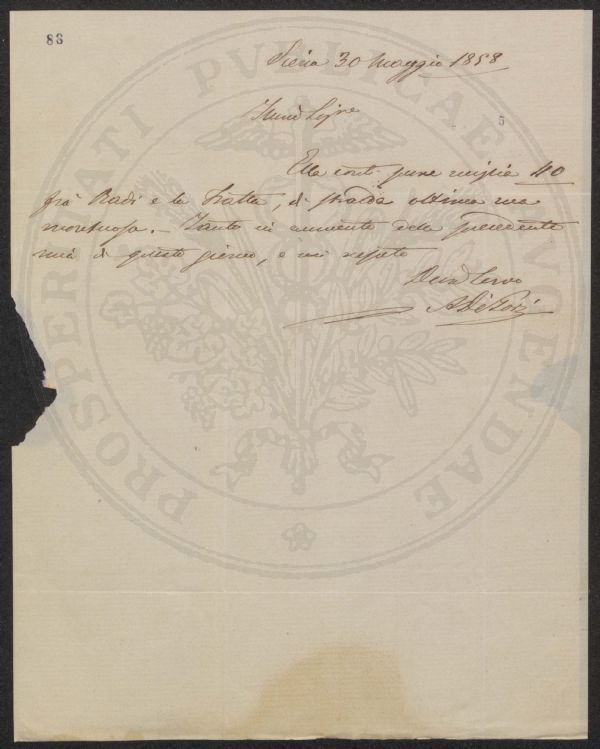 86
Siena 30 Maggio 1858
5
Ella conti pure miglia 40
frà Radi e la Fratta, di strada ottima ma
montuosa. — Tanto in aumento della precedente
mia di questo giorno, e mi ripeto
Servo
PROSPERITATI PVBLICAE AVGENDAE